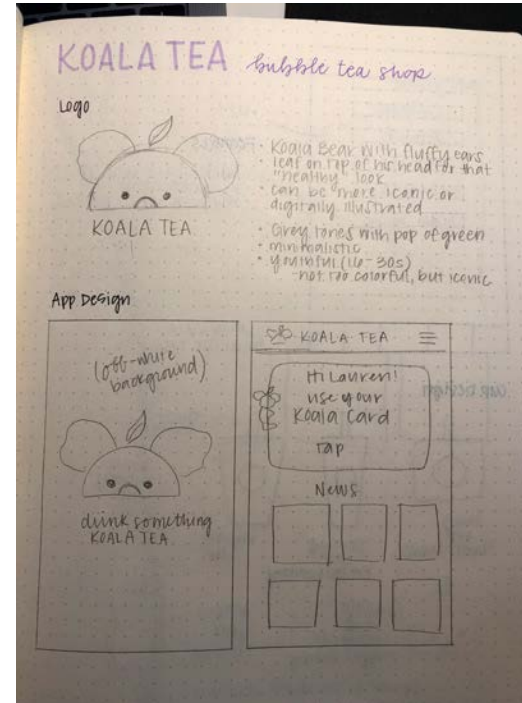 KOALA TEA bubble tea shop
Logo
• Koala Bear with fluffy ears
• leaf on top of his head for that
"healthy" look
• can be more iconic or
digitally illustrated
• Grey tones with pop of green
• minimalistic
• youthful (16-30s)
-not too colorful, but iconic
KOALA TEA
App Design
(off-white
background)
drink something
KOALA TEA
KOALA TEA
Hi Lauren!
use your
Koala Card
Tap
News